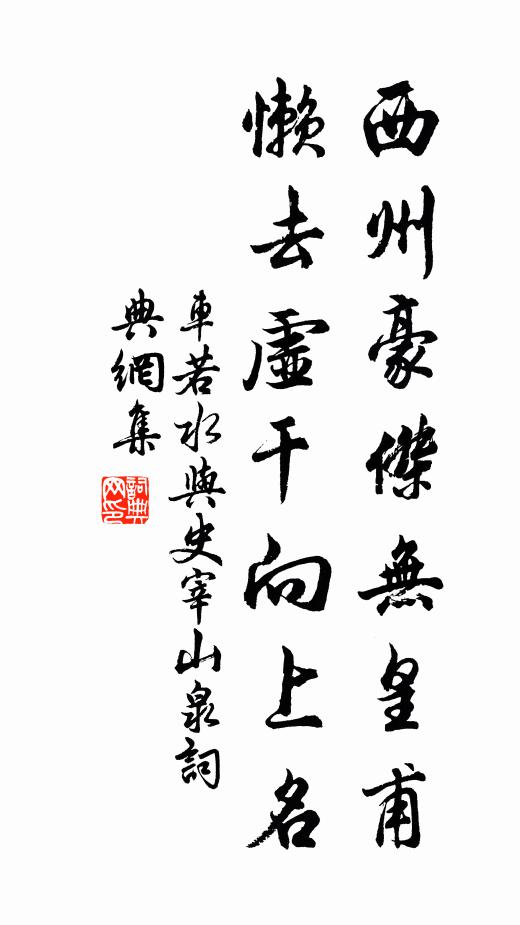 西州豪傑無皇甫
懶去虛干向上名
車若水與史宰山泉詞
典網集
詞典
网印